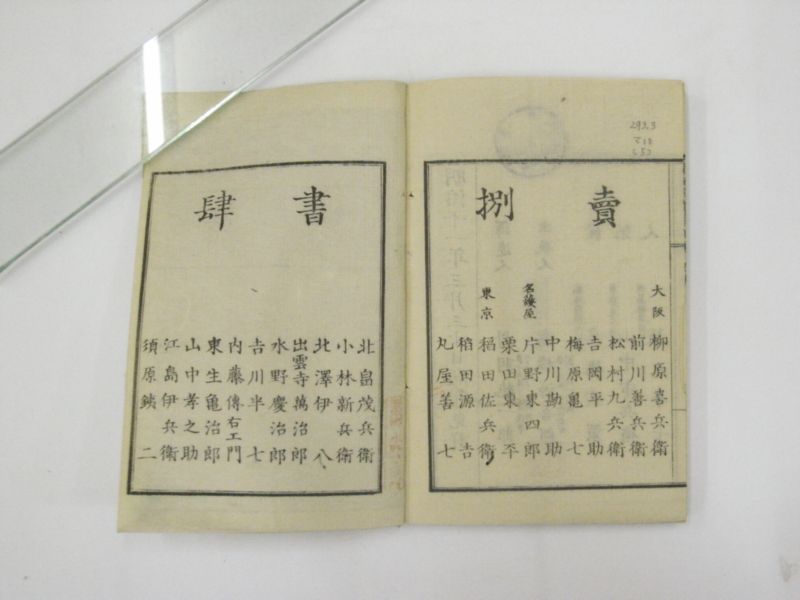 賣捌
大阪 柳原喜兵衛
前川善兵衛
松村九兵衛
吉岡平助
梅原亀七
中川勘助
名護屋 片野東四郎
栗田東平
東京 稻田佐兵衛
稻田源吉
丸屋善七
書肆
北畠茂兵衛
小林新兵衛
北澤伊八
出雲寺萬治郎
水野慶治郎
吉川半七
内藤傳右エ門
東生亀治郎
山中孝之助
江島伊兵衛
須原鉄二
293.3